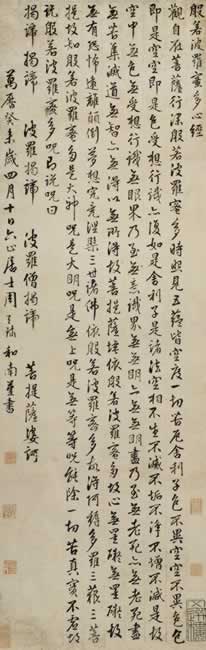 般若波羅蜜多心經
觀自在菩薩行深般若波羅蜜多時照見五蘊皆空度一切苦厄舍利子色不異空空不異色色
即是空空即是色受想行識亦復如是舍利子是諸法空相不生不滅不垢不淨不增不減是故
空中無色無受想行識無眼界乃至無意識界無無明亦無無明盡乃至無老死亦無老死盡
無苦集滅道無智亦無得以無所得故菩提薩埵依般若波羅蜜多故心無罣礙無罣礙故
無有恐怖遠離顛倒夢想究竟涅槃三世諸佛依般若波羅蜜多故得阿耨多羅三藐三菩
提故知般若波羅蜜多是大神咒是大明咒是無上咒是無等等咒能除一切苦真實不虛故
說般若波羅蜜多咒即說咒曰
揭諦揭諦 波羅揭諦 波羅僧揭諦 菩提薩婆訶
萬曆癸未歲四月十日六止居士周天球和南謹書